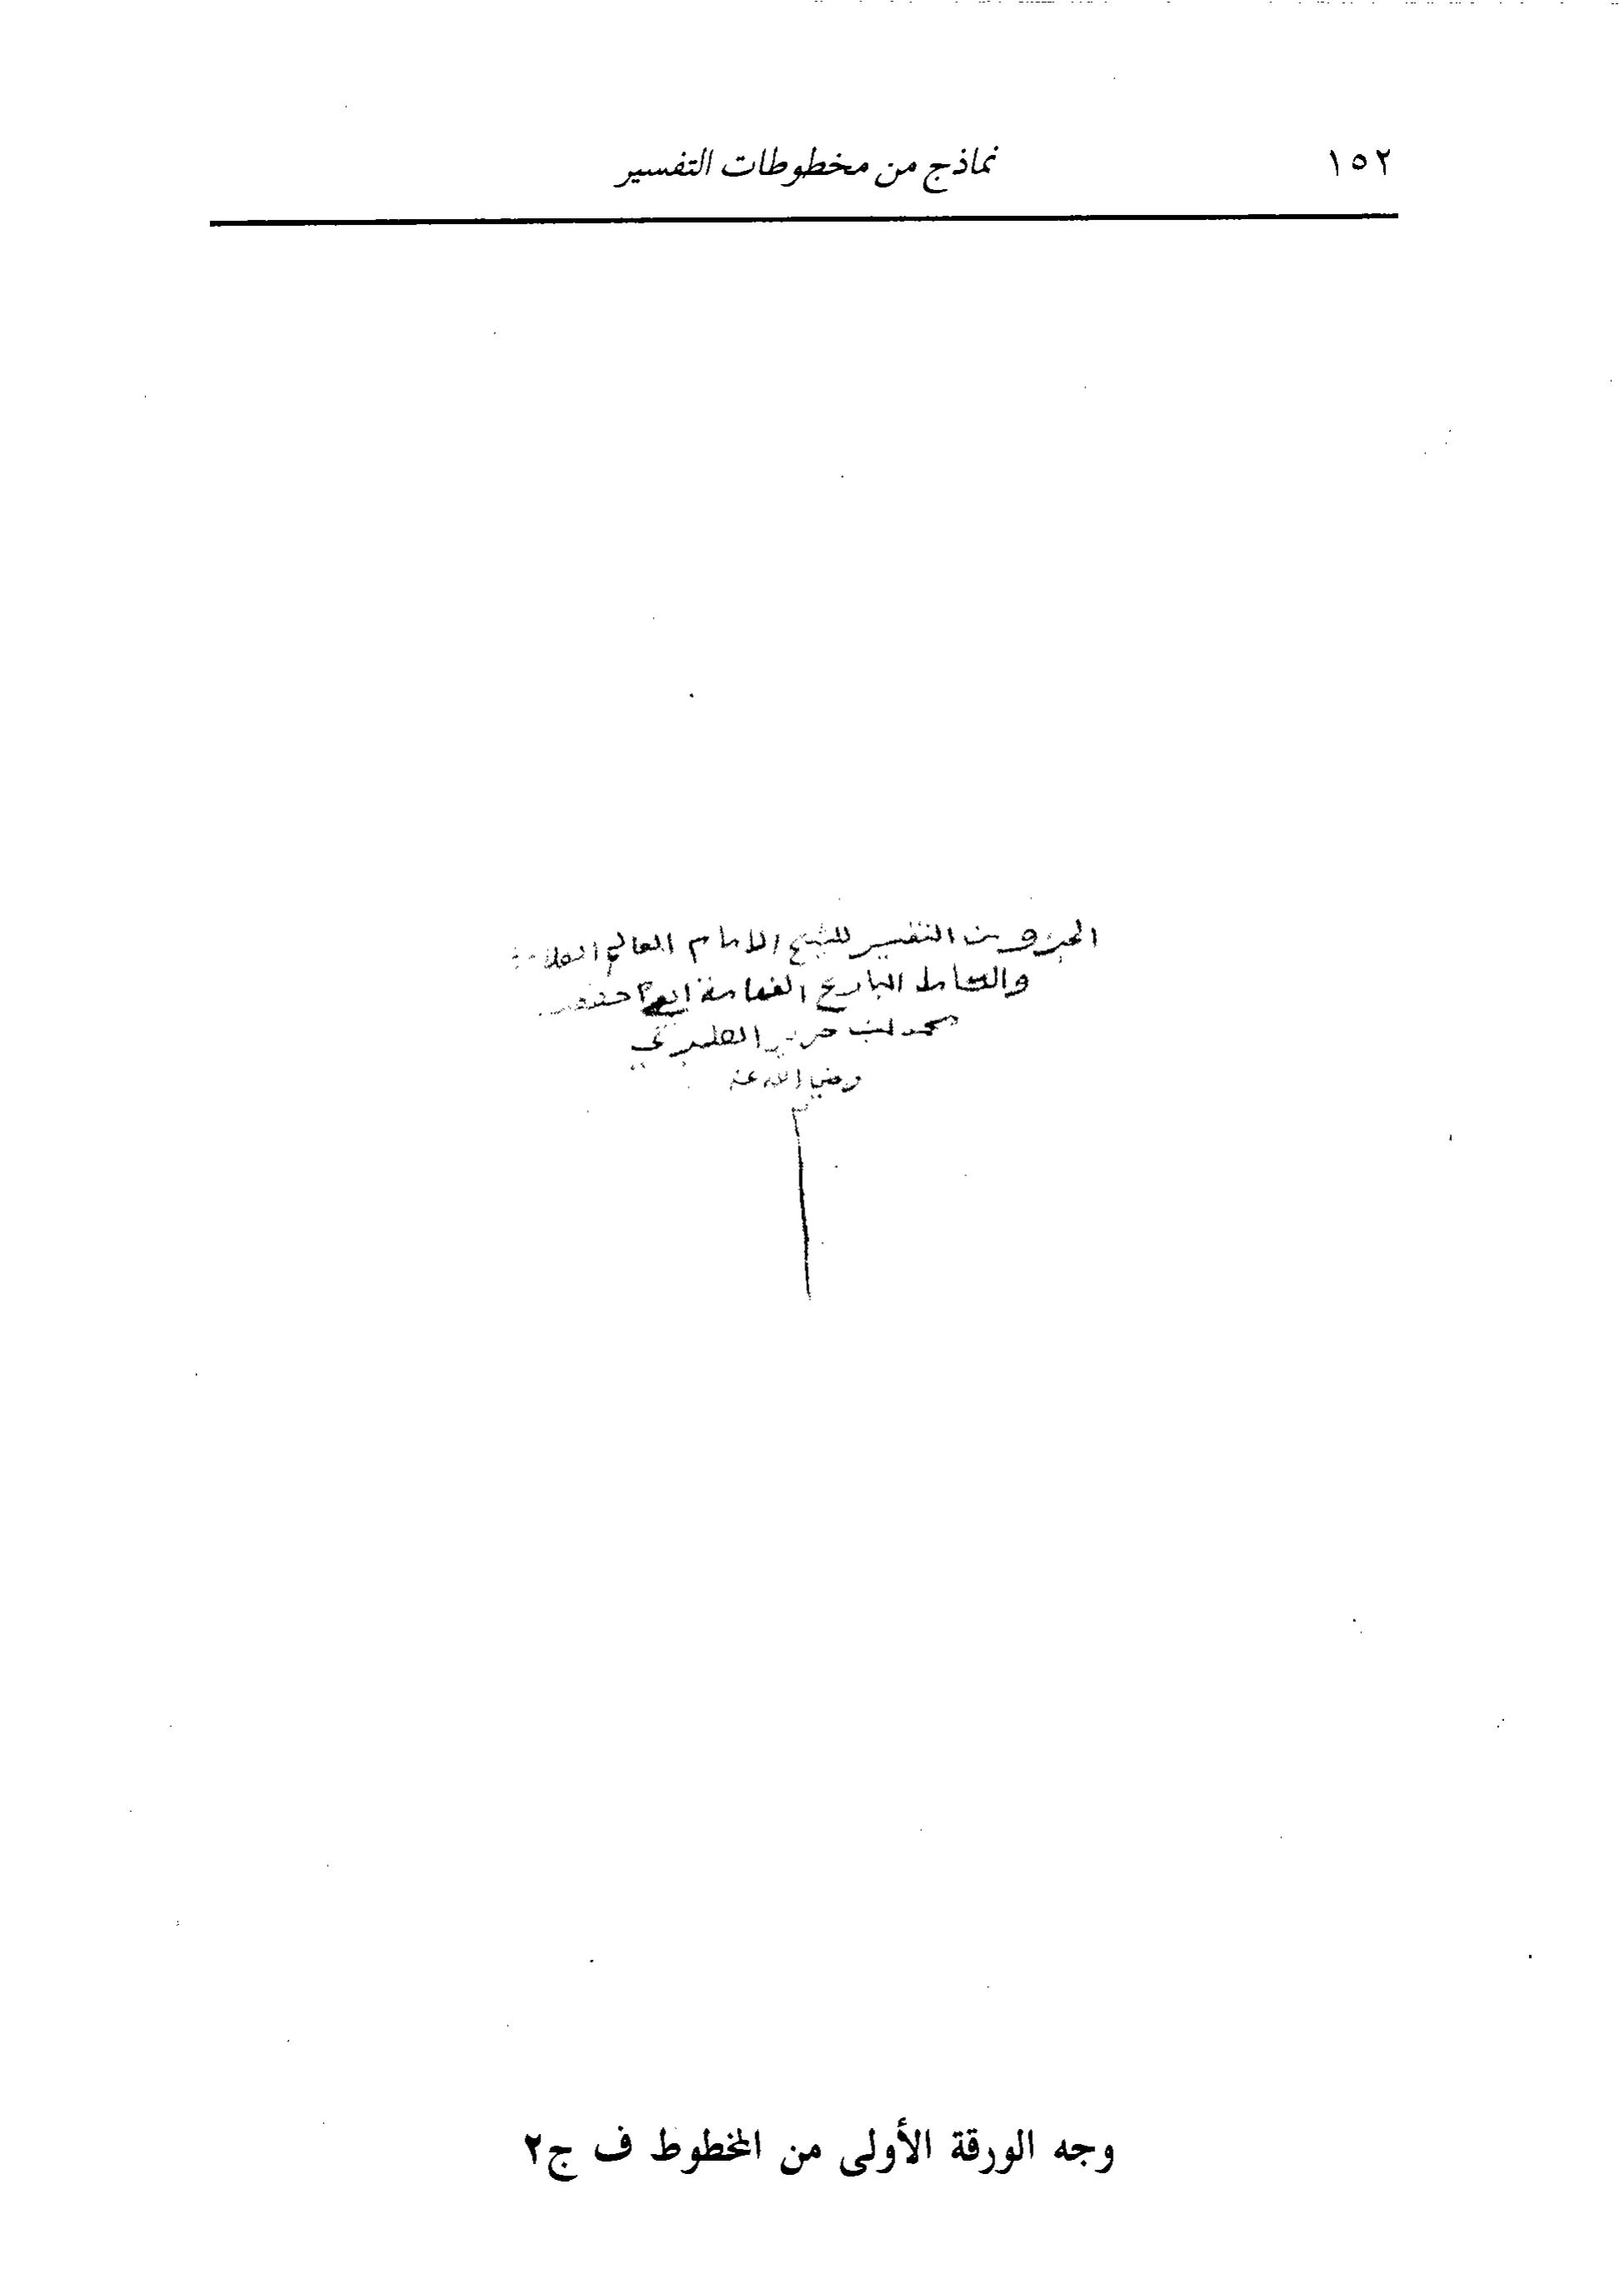 ١٥٢
نماذج من مخطوطات التفسير
الجزو من التفسير للشيخ الامام العالم العلامة
البارع الفهامة ابي
محمد بن جرير الطبري
رضي الله عنه
وجه الورقة الأولى من المخطوط ف ج٢